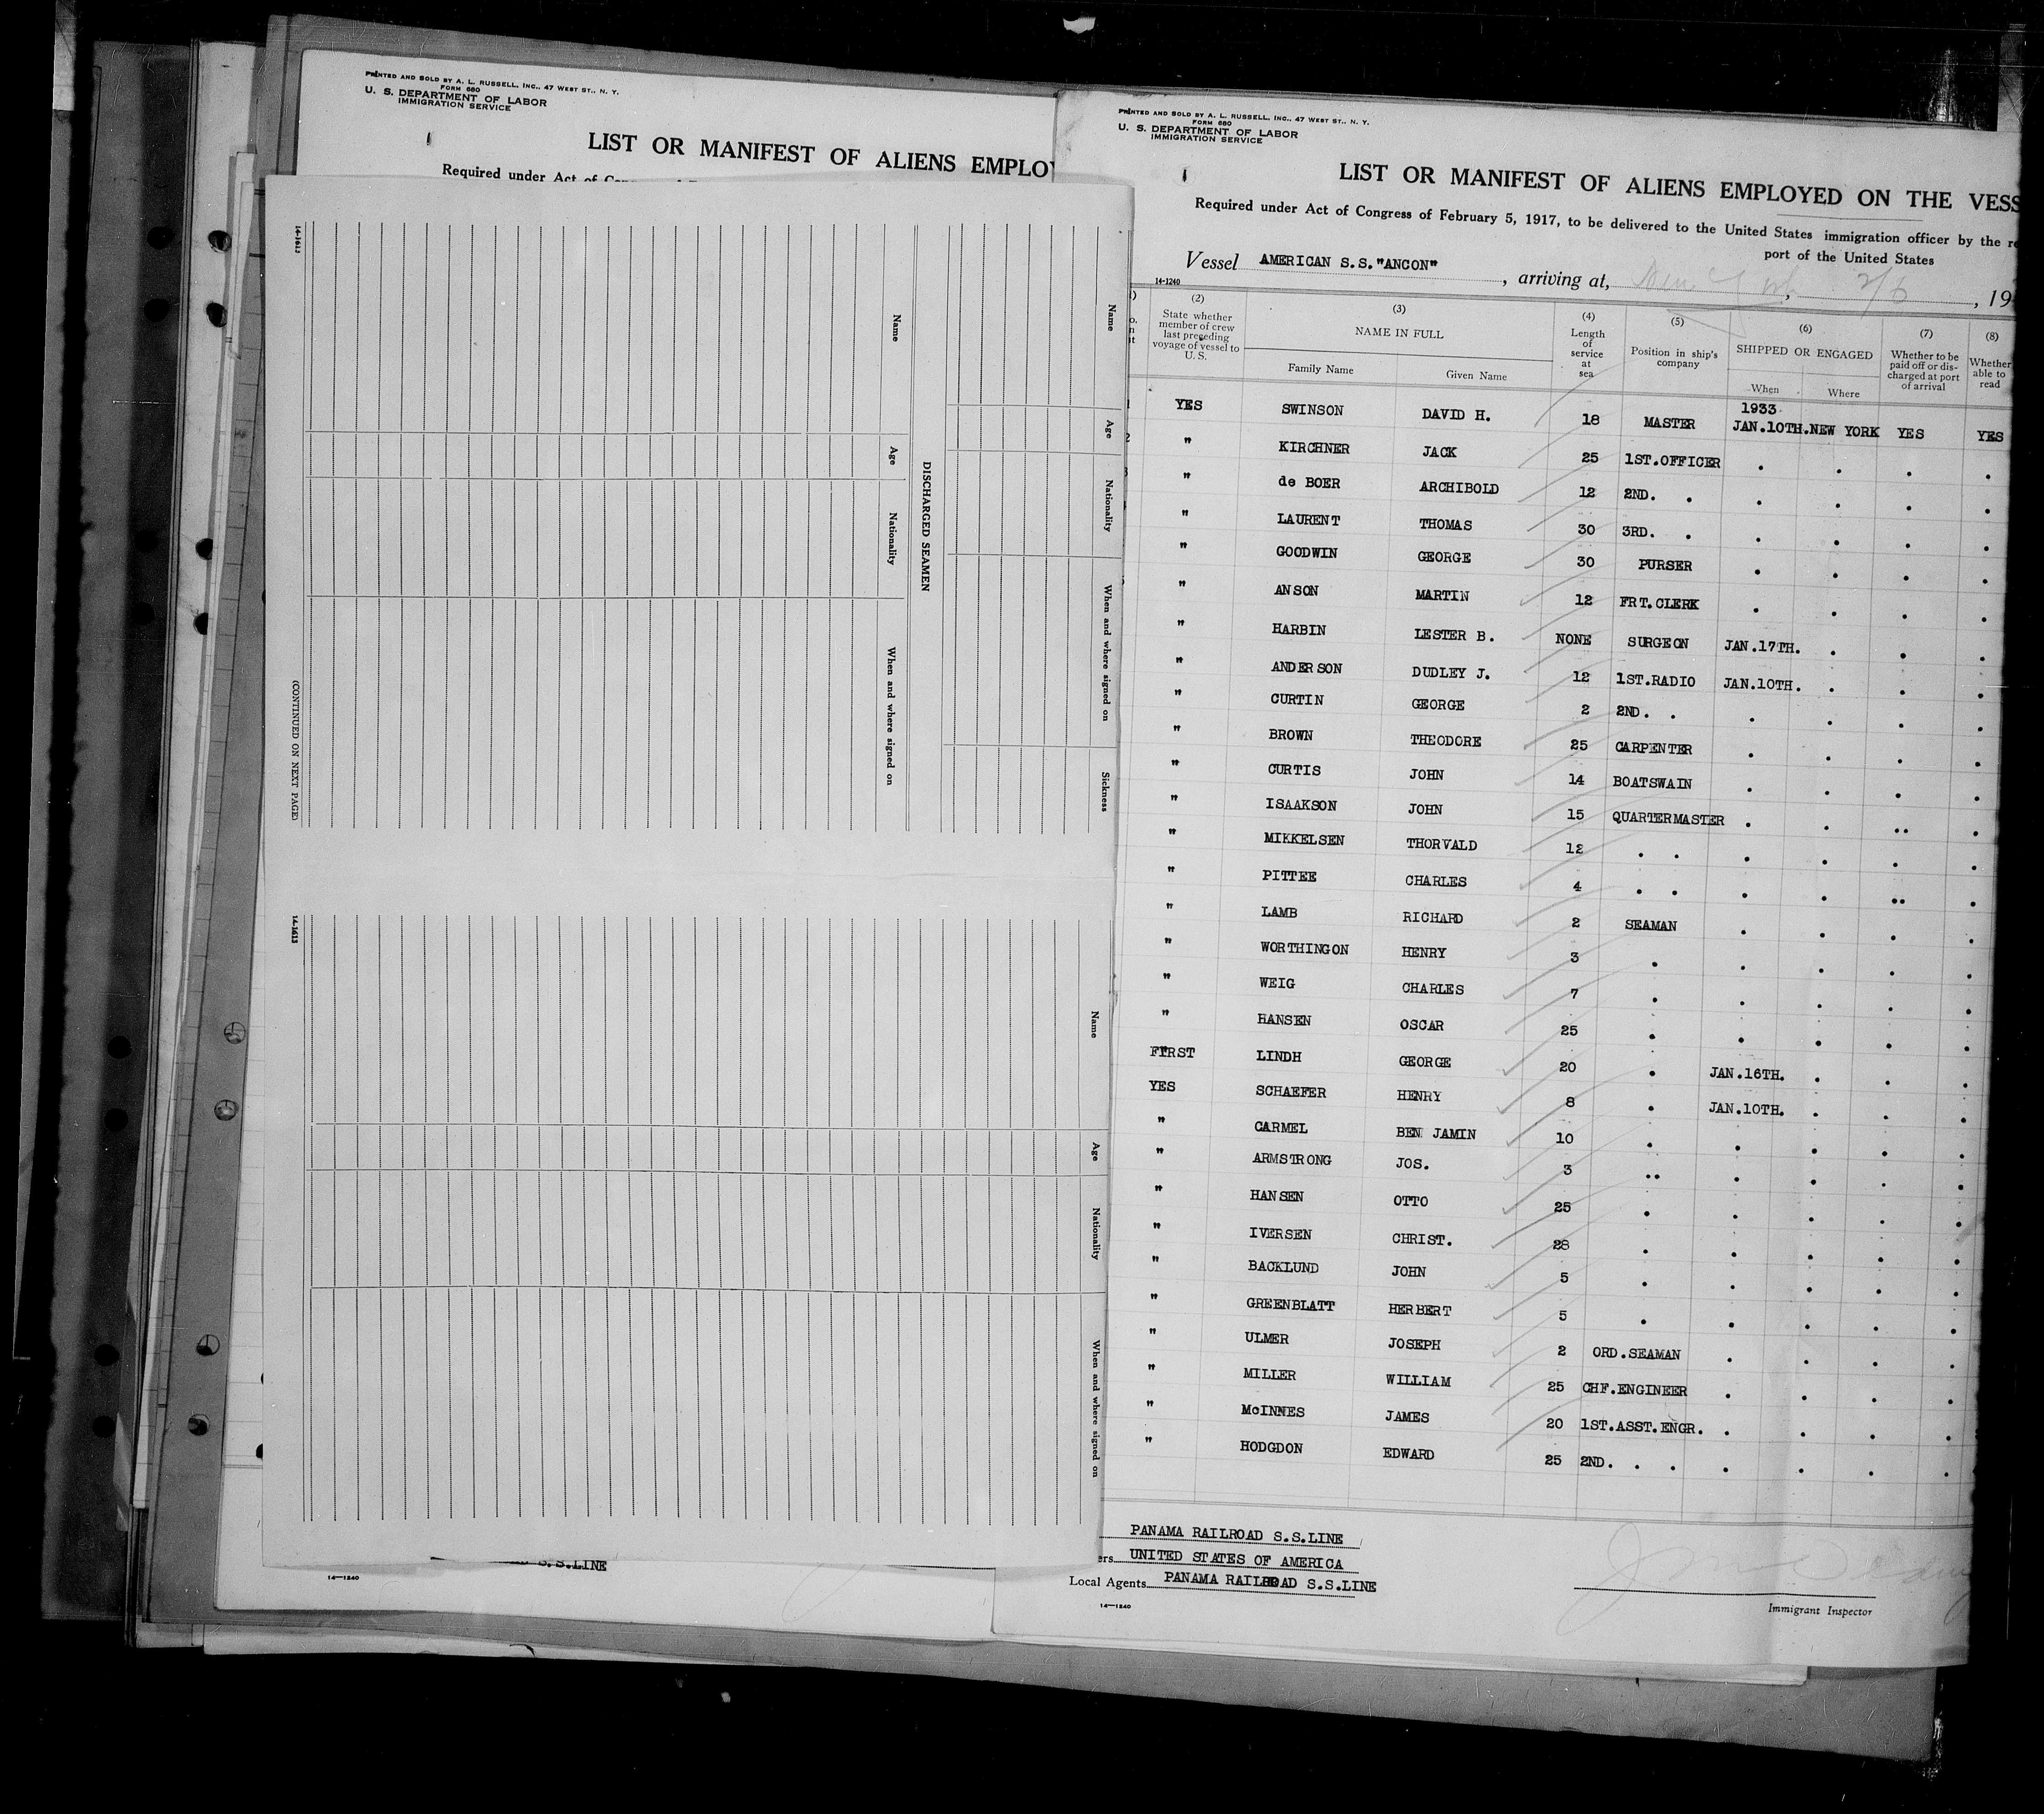 PRINTED AND SOLD BY A. L. RUSSELL, INC., 47 WEST ST., N. Y.
FORM 680
U. S. DEPARTMENT OF LABOR
IMMIGRATION SERVICE
LIST OR MANIFEST OF ALIENS EMPLOY
Required under Act of
14-1613
Name
Age
Nationality
When and where signed on
Sickness
DISCHARGED SEAMEN
Name
Age
Nationality
When and where signed on
(CONTINUED ON NEXT PAGE)
14-1613
Name
Age
Nationality
When and where signed on
S.S.LINE
14-1240
PRINTED AND SOLD BY A. L. RUSSELL, INC., 47 WEST ST., N. Y.
FORM 680
U. S. DEPARTMENT OF LABOR
IMMIGRATION SERVICE
LIST OR MANIFEST OF ALIENS EMPLOYED ON THE VESS
Required under Act of Congress of February 5, 1917, to be delivered to the United States immigration officer by the re
port of the United States
Vessel AMERICAN S.S."ANCON", arriving at, New York, 2/6, 19
14-1240
(2) (3) (4) (5) (6) (7) (8)
State whether member of crew last preceding voyage of vessel to U. S.
NAME IN FULL
Family Name Given Name
Length of service at sea
Position in ship's company
SHIPPED OR ENGAGED
When Where
Whether to be paid off or discharged at port of arrival
Whether able to read
1933
YES SWINSON DAVID H. 18 MASTER JAN.10TH.NEW YORK YES YES
" KIRCHNER JACK 25 1ST.OFFICER . . . .
" de BOER ARCHIBOLD 12 2ND. . . . . .
" LAURENT THOMAS 30 3RD. . . . . .
" GOODWIN GEORGE 30 PURSER . . . .
" ANSON MARTIN 12 FRT.CLERK . . . .
" HARBIN LESTER B. NONE SURGEON JAN.17TH. . . .
" ANDERSON DUDLEY J. 12 1ST.RADIO JAN.10TH. . . .
" CURTIN GEORGE 2 2ND. . . . . .
" BROWN THEODORE 25 CARPENTER . . . .
" CURTIS JOHN 14 BOATSWAIN . . . .
" ISAAKSON JOHN 15 QUARTERMASTER . . .. .
" MIKKELSEN THORVALD 12 . . . . . .
" PITTEE CHARLES 4 . . . . .. .
" LAMB RICHARD 2 SEAMAN . . . .
" WORTHINGON HENRY 3 . . . . .
" WEIG CHARLES 7 . . . . .
" HANSEN OSCAR 25 . . . . .
FIRST LINDH GEORGE 20 . JAN.16TH. . . .
YES SCHAEFER HENRY 8 . JAN.10TH. . . .
" CARMEL BENJAMIN 10 . . . . .
" ARMSTRONG JOS. 3 .. . . . .
" HANSEN OTTO 25 . . . . .
" IVERSEN CHRIST. 28 . . . . .
" BACKLUND JOHN 5 . . . . .
" GREENBLATT HERBERT 5 . . . . .
" ULMER JOSEPH 2 ORD.SEAMAN . . . .
" MILLER WILLIAM 25 CHF.ENGINEER . . . .
" McINNES JAMES 20 1ST.ASST.ENGR. . . . .
" HODGDON EDWARD 25 2ND. . . . . . .
PANAMA RAILROAD S.S.LINE
ers UNITED STATES OF AMERICA
Local Agents PANAMA RAILROAD S.S.LINE
14-1240
Immigrant Inspector